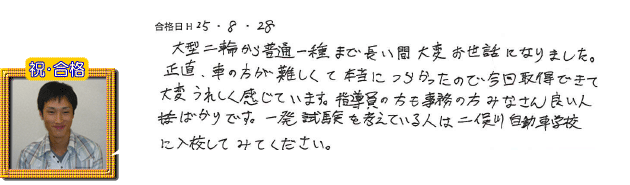 合格日H25・8・28
祝・合格
大型二輪から普通一種まで長い間大変お世話になりました。
正直、車の方が難しくて本当につらかったので今回取得できて
大変うれしく感じています。指導員の方も事務の方みなさん良い人
ばかりです。一発試験を考えている人は二俣川自動車学校
に入校してみてください。